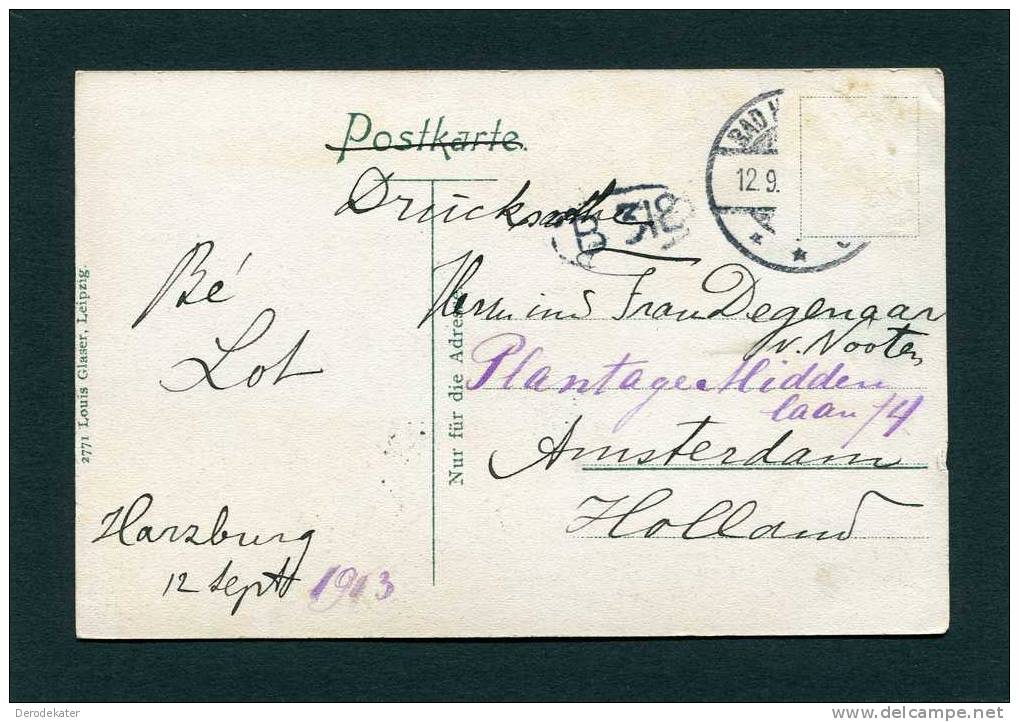 Postkarte.
Drucksache
BAD H
12.9.
B 318
Bé
Lot
Herrn und Frau Degenaar
v. Nooten
Plantage Midden
laan 14
Amsterdam
Holland
Harzburg
12 Sept 1913
Nur für die Adresse
2771 Louis Glaser, Leipzig.
Derodekater
www.delcampe.net